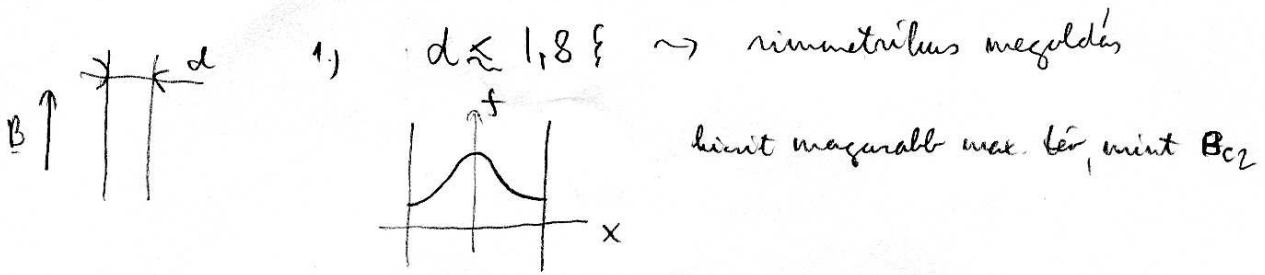 d
B
1.) d ≲ 1,8 ξ ⇝ szimmetrikus megoldás
f
kicsit magasabb max. tér, mint B_{c2}
x